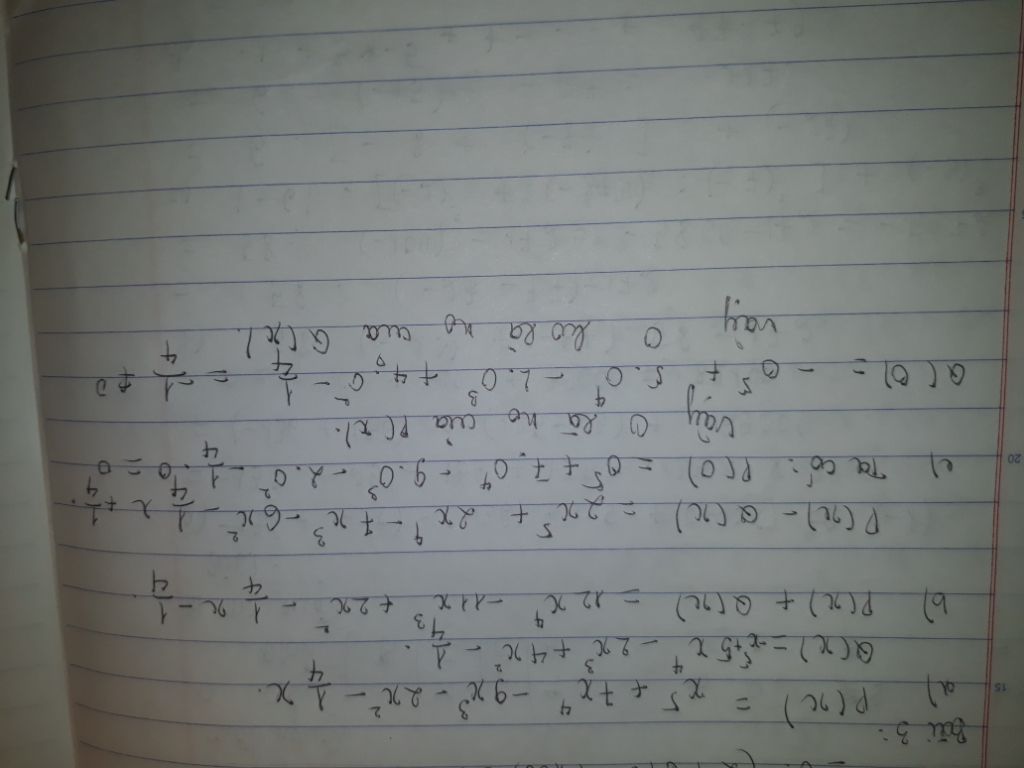 Bài 3:
a) P(x) = x⁵ + 7x⁴ - 9x³ - 2x² - 1/4 x.
Q(x) = -x⁵ + 5x⁴ - 2x³ + 4x² - 1/4.
b) P(x) + Q(x) = 12x⁴ - 11x³ + 2x² - 1/4 x - 1/4.
P(x) - Q(x) = 2x⁵ + 2x⁴ - 7x³ - 6x² - 1/4 x + 1/4.
c) Ta có: P(0) = 0⁵ + 7.0⁴ - 9.0³ - 2.0² - 1/4 . 0 = 0
Vậy 0 là no của P(x).
Q(0) = - 0⁵ + 5.0⁴ - 2.0³ + 4.0² - 1/4 = - 1/4 ≠ 0
Vậy 0 ko là no của Q(x).
15
20